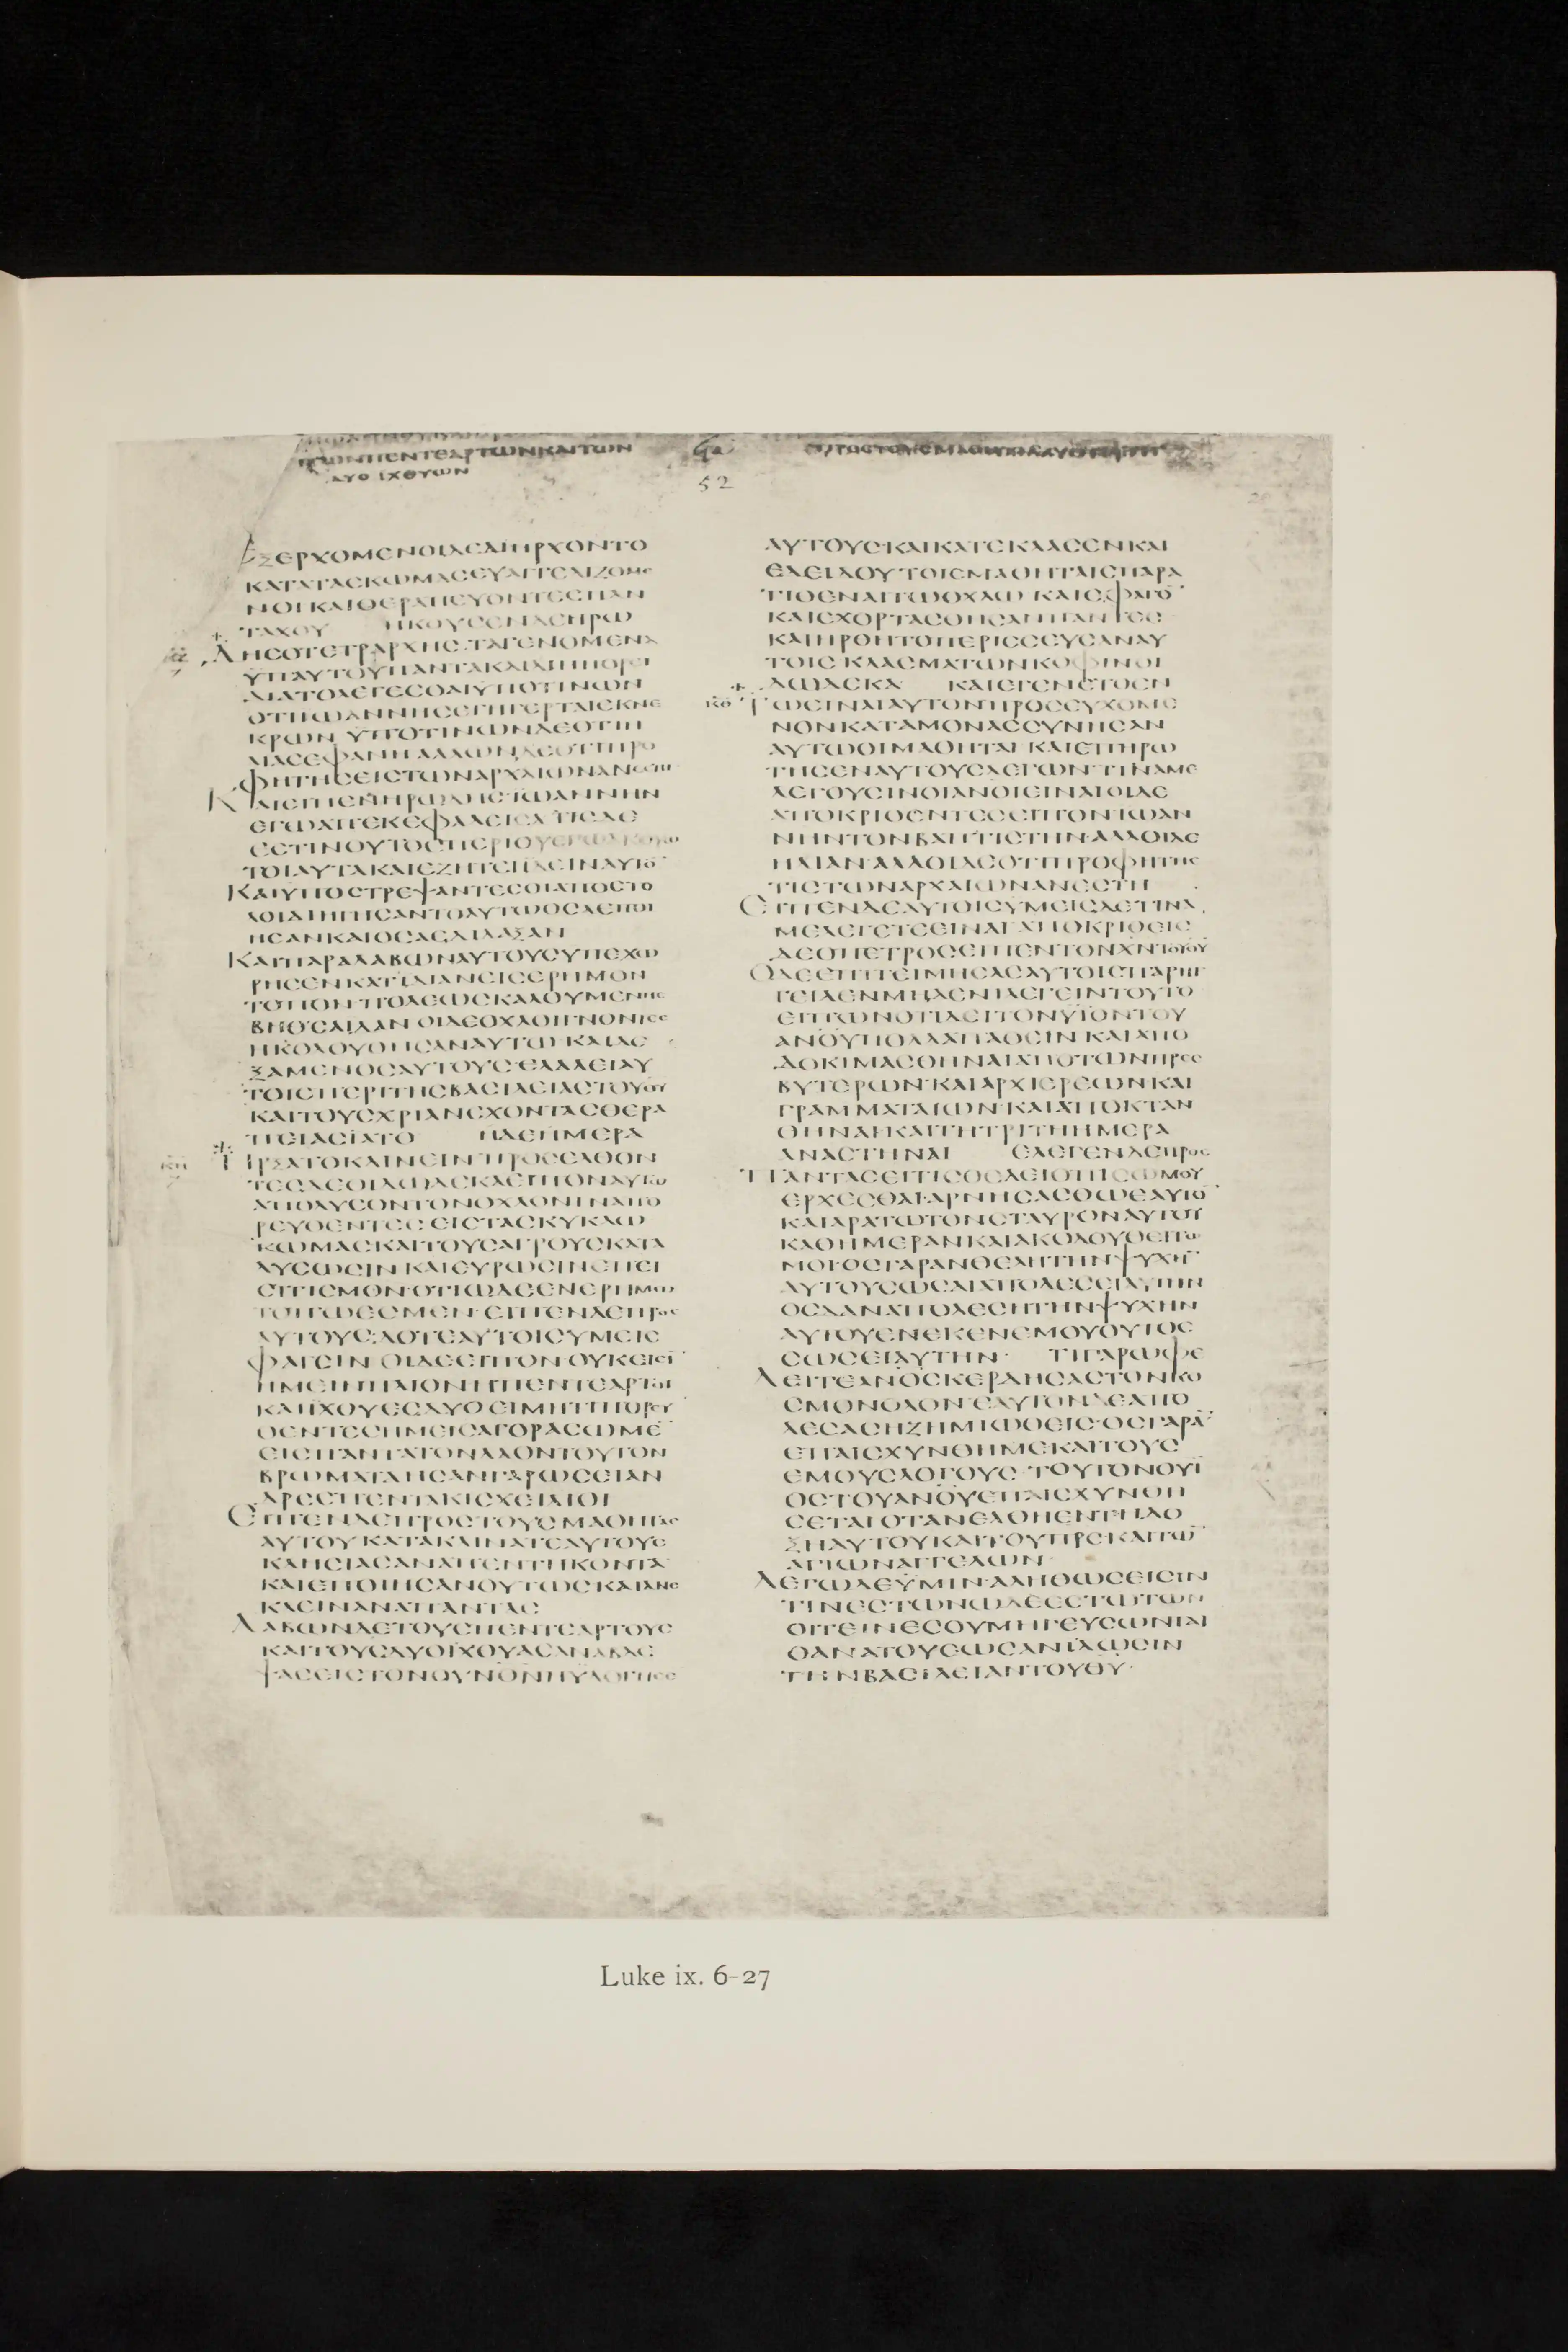 ΤΩΝΠΕΝΤΕΑΡΤΩΝΚΑΙΤΩΝ
ΔΥΟ ΙΧΘΥΩΝ
52
ΕΞΕΡΧΟΜΕΝΟΙΔΕΔΙΗΡΧΟΝΤΟ
ΚΑΤΑΤΑΣΚΩΜΑΣΕΥΑΓΓΕΛΙΖΟΜΕ
ΝΟΙΚΑΙΘΕΡΑΠΕΥΟΝΤΕΣΠΑΝ
ΤΑΧΟΥ ΗΚΟΥΣΕΝΔΕΗΡΩ
ΔΗΣΟΤΕΤΡΑΡΧΗΣ ΤΑΓΕΝΟΜΕΝΑ
ΫΠΑΥΤΟΥΠΑΝΤΑΚΑΙΔΙΗΠΟΡΕΙ
ΔΙΑΤΟΛΕΓΕΣΘΑΙΥΠΟΤΙΝΩΝ
ΟΤΙΙΩΑΝΝΗΣΕΓΗΓΕΡΤΑΙΕΚΝΕ
ΚΡΩΝ ΥΠΟΤΙΝΩΝΔΕΟΤΙΗ
ΛΙΑΣΕΦΑΝΗ ΑΛΛΩΝΔΕΟΤΙΠΡΟ
ΦΗΤΗΣΕΙΣΤΩΝΑΡΧΑΙΩΝΑΝΕΣΤΗ
ΚΑΙΕΙΠΕΝΗΡΩΔΗΣ ΙΩΑΝΝΗΝ
ΕΓΩΑΠΕΚΕΦΑΛΕΙΣΑ ΤΙΣΔΕ
ΕΣΤΙΝΟΥΤΟΣΠΕΡΙΟΥΕΓΩΑΚΟΥΩ
ΤΟΙΑΥΤΑΚΑΙΕΖΗΤΕΙΙΔΕΙΝΑΥΤΟ̄
ΚΑΙΥΠΟΣΤΡΕΨΑΝΤΕΣΟΙΑΠΟΣΤΟ
ΛΟΙΔΙΗΓΗΣΑΝΤΟΑΥΤΩΟΣΑΕΠΟΙ
ΗΣΑΝΚΑΙΟΣΑΕΔΙΔΑΞΑΝ
ΚΑΙΠΑΡΑΛΑΒΩΝΑΥΤΟΥΣΥΠΕΧΩ
ΡΗΣΕΝΚΑΤΙΔΙΑΝΕΙΣΕΡΗΜΟΝ
ΤΟΠΟΝ ΠΟΛΕΩΣΚΑΛΟΥΜΕΝΗΣ
ΒΗΘΣΑΪΔΑΝ ΟΙΔΕΟΧΛΟΙΓΝΟΝΤΕΣ
ΗΚΟΛΟΥΘΗΣΑΝΑΥΤΩ ΚΑΙΔΕ
ΞΑΜΕΝΟΣΑΥΤΟΥΣ ΕΛΑΛΕΙΑΥ
ΤΟΙΣΠΕΡΙΤΗΣΒΑΣΙΛΕΙΑΣΤΟΥΘ̄Ῡ
ΚΑΙΤΟΥΣΧΡΙΑΝΕΧΟΝΤΑΣΘΕΡΑ
ΠΕΙΑΣΙΑΤΟ ΗΔΕΗΜΕΡΑ
ΗΡΞΑΤΟΚΛΙΝΕΙΝ ΠΡΟΣΕΛΘΟΝ
ΤΕΣΔΕΟΙΔΩΔΕΚΑΕΙΠΟΝΑΥΤΩ
ΑΠΟΛΥΣΟΝΤΟΝΟΧΛΟΝΙΝΑΠΟ
ΡΕΥΘΕΝΤΕΣ ΕΙΣΤΑΣΚΥΚΛΩ
ΚΩΜΑΣΚΑΙΤΟΥΣΑΓΡΟΥΣΚΑΤΑ
ΛΥΣΩΣΙΝ ΚΑΙΕΥΡΩΣΙΝΕΠΙΣΙ
ΣΙΤΙΣΜΟΝ ΟΤΙΩΔΕΕΝΕΡΗΜΩ
ΤΟΠΩΕΣΜΕΝ ΕΙΠΕΝΔΕΠΡΟΣ
ΑΥΤΟΥΣ ΔΟΤΕΑΥΤΟΙΣΥΜΕΙΣ
ΦΑΓΕΙΝ ΟΙΔΕΕΙΠΟΝ ΟΥΚΕΙΣΙ
ΗΜΕΙΝΠΛΙΟΝΗΠΕΝΤΕΑΡΤΟΙ
ΚΑΙΙΧΘΥΕΣΔΥΟ ΕΙΜΗΤΙΠΟΡΕΥ
ΘΕΝΤΕΣΗΜΕΙΣΑΓΟΡΑΣΩΜΕ
ΕΙΣΠΑΝΤΑΤΟΝΛΑΟΝΤΟΥΤΟΝ
ΒΡΩΜΑΤΑ ΗΣΑΝΓΑΡΩΣΕΙΑΝ
ΔΡΕΣΠΕΝΤΑΚΙΣΧΕΙΛΙΟΙ
ΕΙΠΕΝΔΕΠΡΟΣΤΟΥΣΜΑΘΗΤΑΣ
ΑΥΤΟΥ ΚΑΤΑΚΛΙΝΑΤΕΑΥΤΟΥΣ
ΚΛΗΣΙΑΣΑΝΑΠΕΝΤΗΚΟΝΤΑ
ΚΑΙΕΠΟΙΗΣΑΝΟΥΤΩΣ ΚΑΙΑΝΕ
ΚΛΕΙΝΑΝΑΠΑΝΤΑΣ
ΛΑΒΩΝΔΕΤΟΥΣΠΕΝΤΕΑΡΤΟΥΣ
ΚΑΙΤΟΥΣΔΥΟΙΧΘΥΑΣΑΝΑΒΛΕ
ΨΑΣΕΙΣΤΟΝΟΥΝΟΝΗΥΛΟΓΗΣΕ
ΑΥΤΟΥΣ ΚΑΙΚΑΤΕΚΛΑΣΕΝΚΑΙ
ΕΔΕΙΔΟΥ ΤΟΙΣΜΑΘΗΤΑΙΣΠΑΡΑ
ΤΙΘΕΝΑΙΤΩΟΧΛΩ ΚΑΙΕΦΑΓΟ̄
ΚΑΙΕΧΟΡΤΑΣΘΗΣΑΝΠΑΝΤΕΣ
ΚΑΙΗΡΘΗΤΟΠΕΡΙΣΣΕΥΣΑΝΑΥ
ΤΟΙΣ ΚΛΑΣΜΑΤΩΝΚΟΦΙΝΟΙ
ΔΩΔΕΚΑ ΚΑΙΕΓΕΝΕΤΟΕΝ
ΤΩΕΙΝΑΙΑΥΤΟΝΠΡΟΣΕΥΧΟΜΕ
ΝΟΝΚΑΤΑΜΟΝΑΣΣΥΝΗΣΑΝ
ΑΥΤΩΟΙΜΑΘΗΤΑΙ ΚΑΙΕΠΗΡΩ
ΤΗΣΕΝΑΥΤΟΥΣΛΕΓΩΝ ΤΙΝΑΜΕ
ΛΕΓΟΥΣΙΝΟΙΑΝΟΙΕΙΝΑΙΟΙΔΕ
ΑΠΟΚΡΙΘΕΝΤΕΣΕΙΠΟΝΙΩΑΝ
ΝΗΝΤΟΝΒΑΠΤΙΣΤΗΝ ΑΛΛΟΙΔΕ
ΗΛΙΑΝ ΑΛΛΟΙΔΕΟΤΙΠΡΟΦΗΤΗΣ
ΤΙΣΤΩΝΑΡΧΑΙΩΝΑΝΕΣΤΗ
ΕΙΠΕΝΔΕΑΥΤΟΙΣΥΜΕΙΣΔΕΤΙΝΑ
ΜΕΛΕΓΕΤΕΕΙΝΑΙ ΑΠΟΚΡΙΘΕΙΣ
ΔΕΟΠΕΤΡΟΣΕΙΠΕΝΤΟΝΧ̄Ν̄ΤΟΥΘ̄Ῡ
ΟΔΕΕΠΙΤΕΙΜΗΣΑΣΑΥΤΟΙΣΠΑΡΗΓ
ΓΕΙΛΕΝΜΗΔΕΝΙΛΕΓΕΙΝΤΟΥΤΟ
ΕΙΠΩΝΟΤΙΔΕΙΤΟΝΥΪΟΝΤΟΥ
ΑΝΟΥΠΟΛΛΑΠΑΘΕΙΝ ΚΑΙΑΠΟ
ΔΟΚΙΜΑΣΘΗΝΑΙΑΠΟΤΩΝΠΡΕΣ
ΒΥΤΕΡΩΝ ΚΑΙΑΡΧΙΕΡΕΩΝΚΑΙ
ΓΡΑΜΜΑΤΑΙΩΝ ΚΑΙΑΠΟΚΤΑΝ
ΘΗΝΑΙ ΚΑΙΤΗΤΡΙΤΗΗΜΕΡΑ
ΑΝΑΣΤΗΝΑΙ ΕΛΕΓΕΝΔΕΠΡΟΣ
ΠΑΝΤΑΣΕΙΤΙΣΘΕΛΕΙΟΠΙΣΩΜΟΥ
ΕΡΧΕΣΘΑΙ ΑΡΝΗΣΑΣΘΩΕΑΥΤΟ̄
ΚΑΙΑΡΑΤΩΤΟΝΣΤΑΥΡΟΝΑΥΤΟΥ
ΚΑΘΗΜΕΡΑΝΚΑΙΑΚΟΛΟΥΘΕΙΤΩ
ΜΟΙ ΟΣΓΑΡΑΝΘΕΛΗΤΗΝΨΥΧΗ̄
ΑΥΤΟΥΣΩΣΑΙΑΠΟΛΕΣΕΙΑΥΤΗΝ
ΟΣΔΑΝΑΠΟΛΕΣΗΤΗΝΨΥΧΗΝ
ΑΥΤΟΥΕΝΕΚΕΝΕΜΟΥΟΥΤΟΣ
ΣΩΣΕΙΑΥΤΗΝ ΤΙΓΑΡΩΦΕ
ΛΕΙΤΕΑΝΟΣΚΕΡΔΗΣΑΣΤΟΝΚΟ
ΣΜΟΝΟΛΟΝ ΕΑΥΤΟΝΔΕΑΠΟ
ΛΕΣΑΣΗΖΗΜΙΩΘΕΙΣ ΟΣΓΑΡᾹ
ΕΠΑΙΣΧΥΝΘΗΜΕΚΑΙΤΟΥΣ
ΕΜΟΥΣΛΟΓΟΥΣ ΤΟΥΤΟΝΟΥΪ
ΟΣΤΟΥΑΝΟΥΕΠΑΙΣΧΥΝΘΗ
ΣΕΤΑΙΟΤΑΝΕΛΘΗΕΝΤΗΔΟ
ΞΗΑΥΤΟΥΚΑΙΤΟΥΠΡΣ ΚΑΙΤΩ̄
ΑΓΙΩΝΑΓΓΕΛΩΝ
ΛΕΓΩΔΕΫΜΙΝ ΑΛΗΘΩΣΕΙΣΙΝ
ΤΙΝΕΣΤΩΝΩΔΕΕΣΤΩΤΩΝ
ΟΙΤΕΙΝΕΣΟΥΜΗΓΕΥΣΩΝΤΑΙ
ΘΑΝΑΤΟΥΕΩΣΑΝΙΔΩΣΙΝ
ΤΗΝΒΑΣΙΛΕΙΑΝΤΟΥΘ̄Ῡ
Luke ix. 6–27